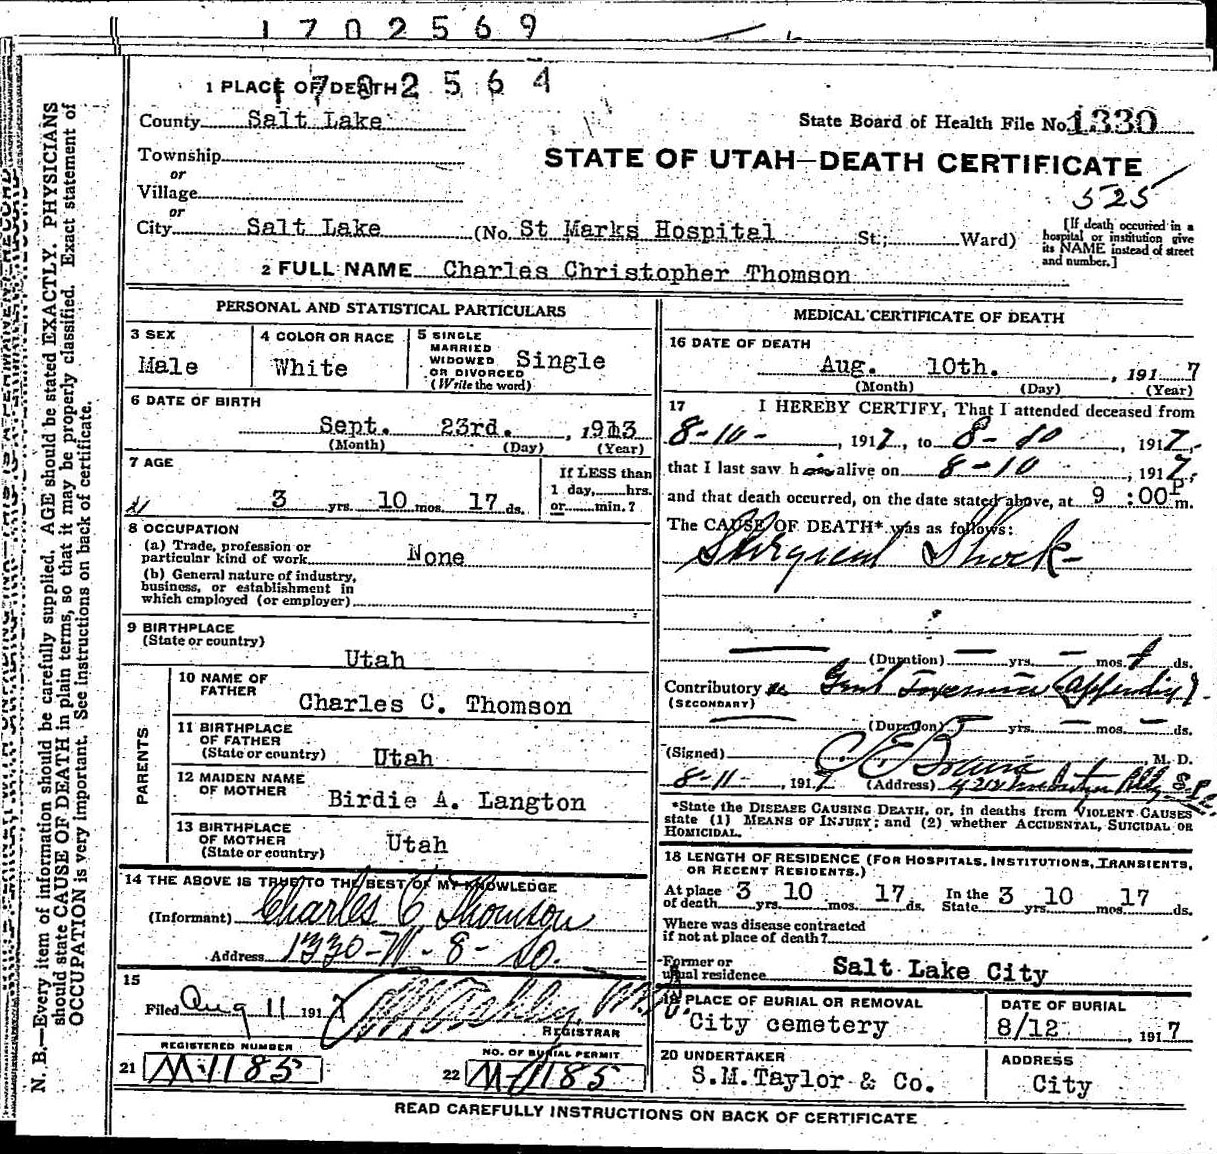 1702569
1 PLACE OF DEATH 1702564
County Salt Lake
State Board of Health File No. 1330
Township
or
Village
or
STATE OF UTAH—DEATH CERTIFICATE
525
City Salt Lake (No. St Marks Hospital St; Ward)
[If death occurred in a
hospital or institution give
its NAME instead of street
and number.]
2 FULL NAME Charles Christopher Thomson
PERSONAL AND STATISTICAL PARTICULARS
3 SEX
Male
4 COLOR OR RACE
White
5 SINGLE
MARRIED
WIDOWED
OR DIVORCED
(Write the word)
Single
6 DATE OF BIRTH
Sept. 23rd. , 1913
(Month) (Day) (Year)
7 AGE
3 yrs. 10 mos. 17 ds.
If LESS than
1 day, hrs.
or min.?
8 OCCUPATION
(a) Trade, profession or
particular kind of work None
(b) General nature of industry,
business, or establishment in
which employed (or employer)
9 BIRTHPLACE
(State or country)
Utah
PARENTS
10 NAME OF
FATHER
Charles C. Thomson
11 BIRTHPLACE
OF FATHER
(State or country) Utah
12 MAIDEN NAME
OF MOTHER
Birdie A. Langton
13 BIRTHPLACE
OF MOTHER
(State or country) Utah
14 THE ABOVE IS TRUE TO THE BEST OF MY KNOWLEDGE
(Informant) Charles C Thomson
Address 1330-W-8-So.
15
Filed Aug 11 1917
REGISTRAR
REGISTERED NUMBER
21 M-1185
NO. OF BURIAL PERMIT
22 M-1185
MEDICAL CERTIFICATE OF DEATH
16 DATE OF DEATH
Aug. 10th. , 1917
(Month) (Day) (Year)
17 I HEREBY CERTIFY, That I attended deceased from
8-10- , 1917, to 8-10 , 1917,
that I last saw him alive on 8-10 , 1917,
and that death occurred, on the date stated above, at 9:00 P m.
The CAUSE OF DEATH* was as follows:
Surgical Shock-
(Duration) — yrs. — mos. ds.
Contributory
(SECONDARY)
(Duration) yrs. — mos. — ds.
(Signed) M. D.
8-11- , 1917 (Address)
*State the DISEASE CAUSING DEATH, or, in deaths from VIOLENT CAUSES
state (1) MEANS OF INJURY; and (2) whether ACCIDENTAL, SUICIDAL OR
HOMICIDAL.
18 LENGTH OF RESIDENCE (FOR HOSPITALS, INSTITUTIONS, TRANSIENTS,
OR RECENT RESIDENTS.)
At place
of death 3 yrs. 10 mos. 17 ds. In the
State 3 yrs. 10 mos. 17 ds.
Where was disease contracted
if not at place of death?
Former or
usual residence Salt Lake City
19 PLACE OF BURIAL OR REMOVAL
City cemetery
DATE OF BURIAL
8/12 , 1917
20 UNDERTAKER
S.M.Taylor & Co.
ADDRESS
City
READ CAREFULLY INSTRUCTIONS ON BACK OF CERTIFICATE
N. B.—Every item of information should be carefully supplied. AGE should be stated EXACTLY. PHYSICIANS
should state CAUSE OF DEATH in plain terms, so that it may be properly classified. Exact statement of
OCCUPATION is very important. See instructions on back of certificate.